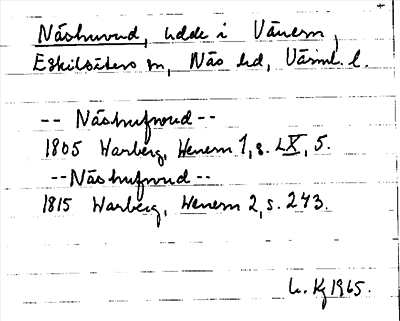 Näshuvud, udde i Vänern,
Eskilsäters sn, Näs hd, Värml. l.
-- Näshufwud --
1805 Warberg, Wenern 1, s. LX, 5.
-- Näshufwud --
1815 Warberg, Wenern 2, s. 243.
L. Kg 1965.